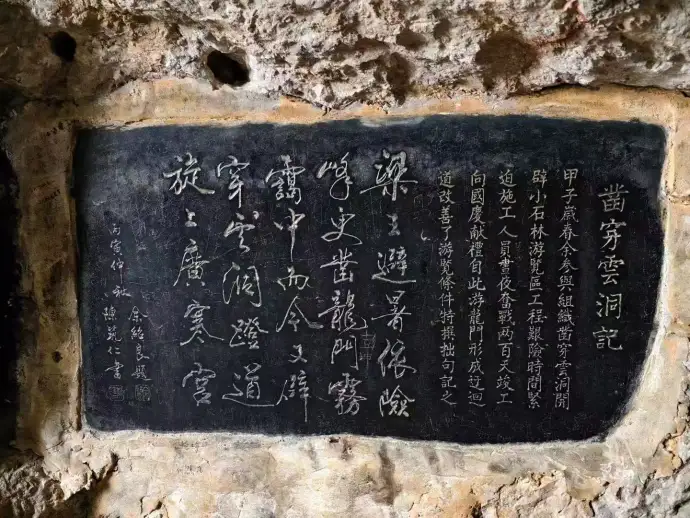 凿穿雲洞記
甲子歲春余參與組織凿穿雲洞開
辟小石林游覽區工程艱險時間緊
迫施工人員晝夜奋戰两百天竣工
向國慶献禮自此游龍門形成迂迴
道改善了游覽條件特撰拙句記之
梁王避暑依險
峰史凿龍門霧
靄中而今又辟
穿雲洞蹬道
旋上廣寒宫
丙寅仲秋
余紹良題
陳苑仁書